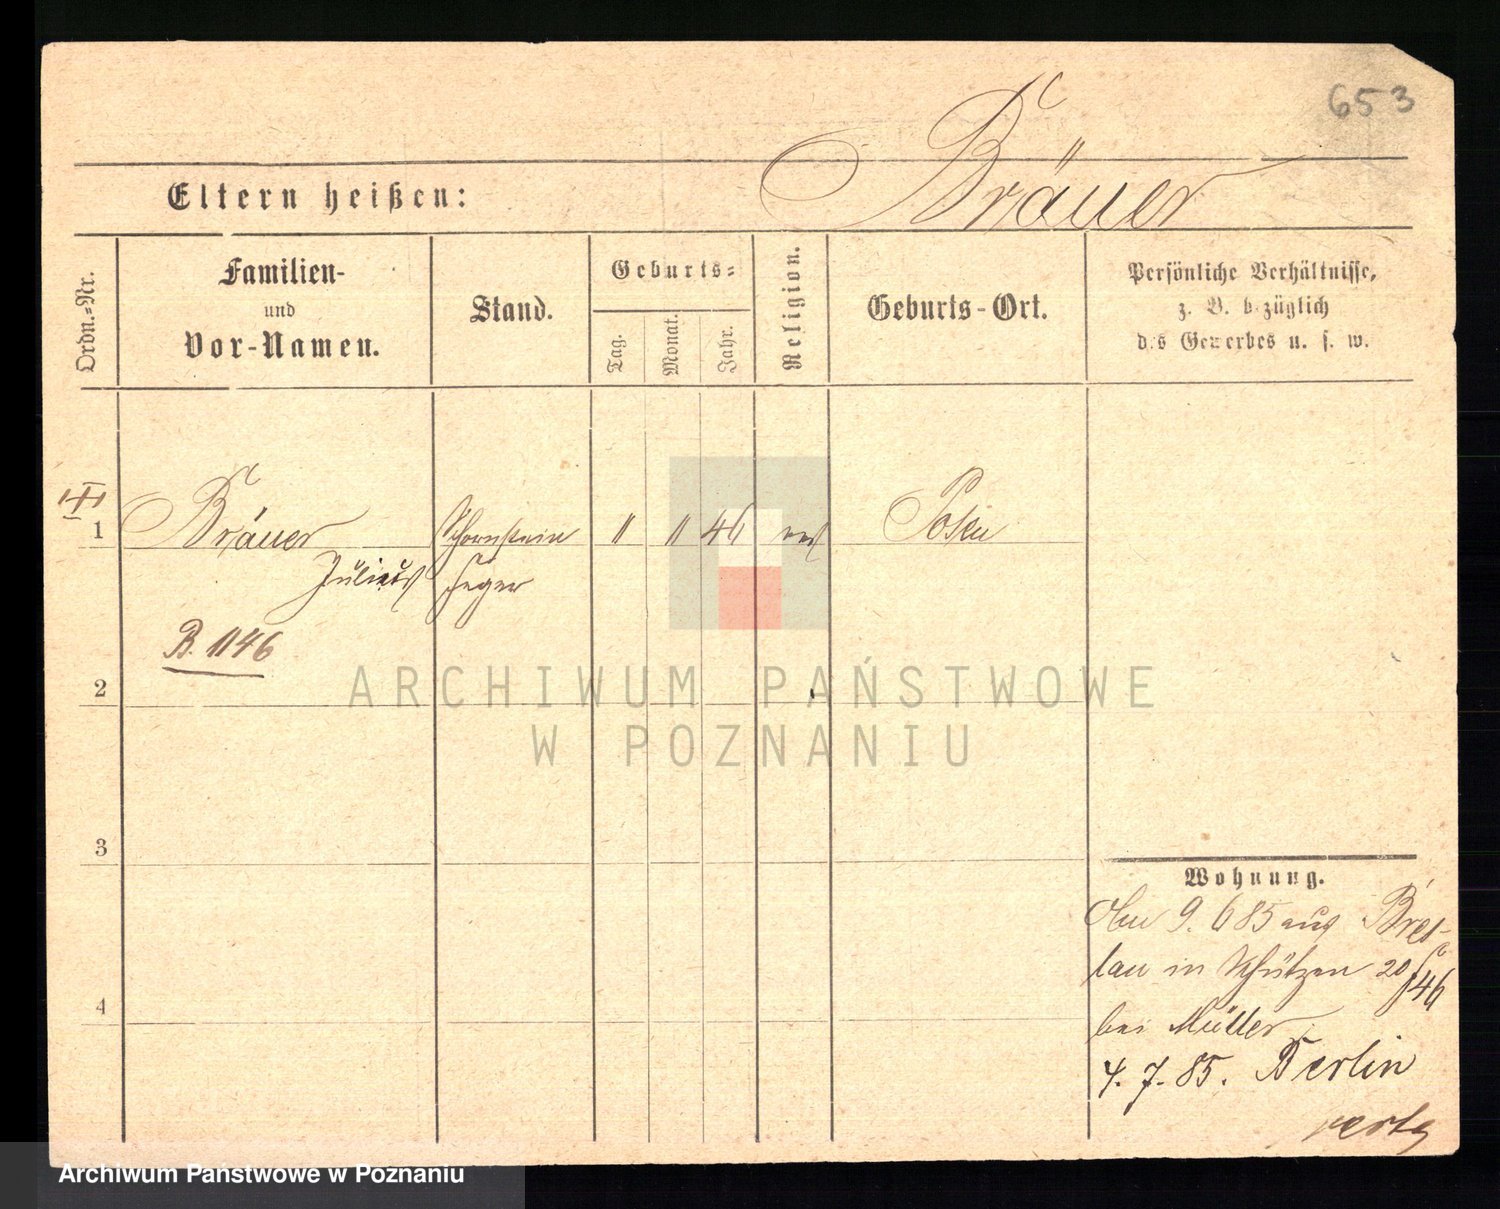 653
Bräuer
Eltern heißen:
Ordn.-Nr.
Familien-
und
Vor-Namen.
Stand.
Geburts-
Tag.
Monat.
Jahr.
Religion.
Geburts-Ort.
Persönliche Verhältnisse,
z. B. bezüglich
des Gewerbes u. s. w.
1 Bräuer Schornstein " " 46 Posen
Julius feger
B. 1146
2
3
4
Wohnung.
9. 6 85 aus Bres-
lau in Schützen 20
bei Müller
4. 7. 85. Berlin
ARCHIWUM PAŃSTWOWE
W POZNANIU
Archiwum Państwowe w Poznaniu